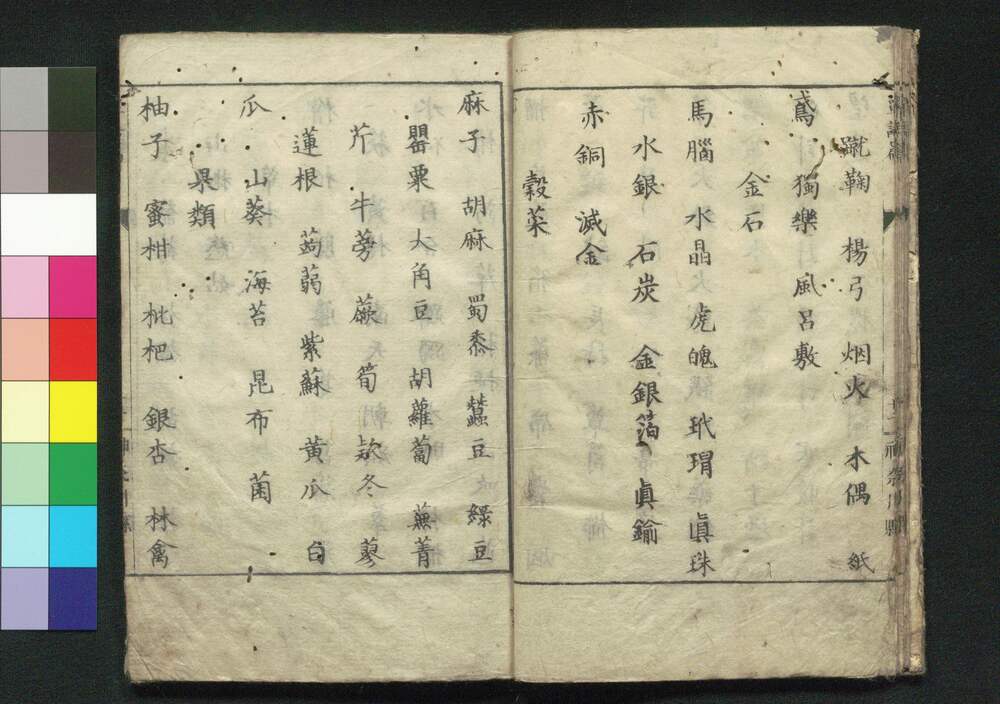 蹴鞠　楊弓　烟火　木偶　紙
鳶　獨樂　風呂敷
金石
馬腦　水晶　虎魄　玳瑁　眞珠
水銀　石炭　金銀箔　眞鍮
赤銅　滅金
穀菜
麻子　胡麻　蜀黍　蠶豆　綠豆
罌粟　大角豆　胡蘿蔔　蕪菁
芹　牛蒡　蕨　筍　款冬　蓼
蓮根　蒟蒻　紫蘇　黄瓜　白
瓜　山葵　海苔　昆布　菌
果類
柚子　蜜柑　枇杷　銀杏　林禽